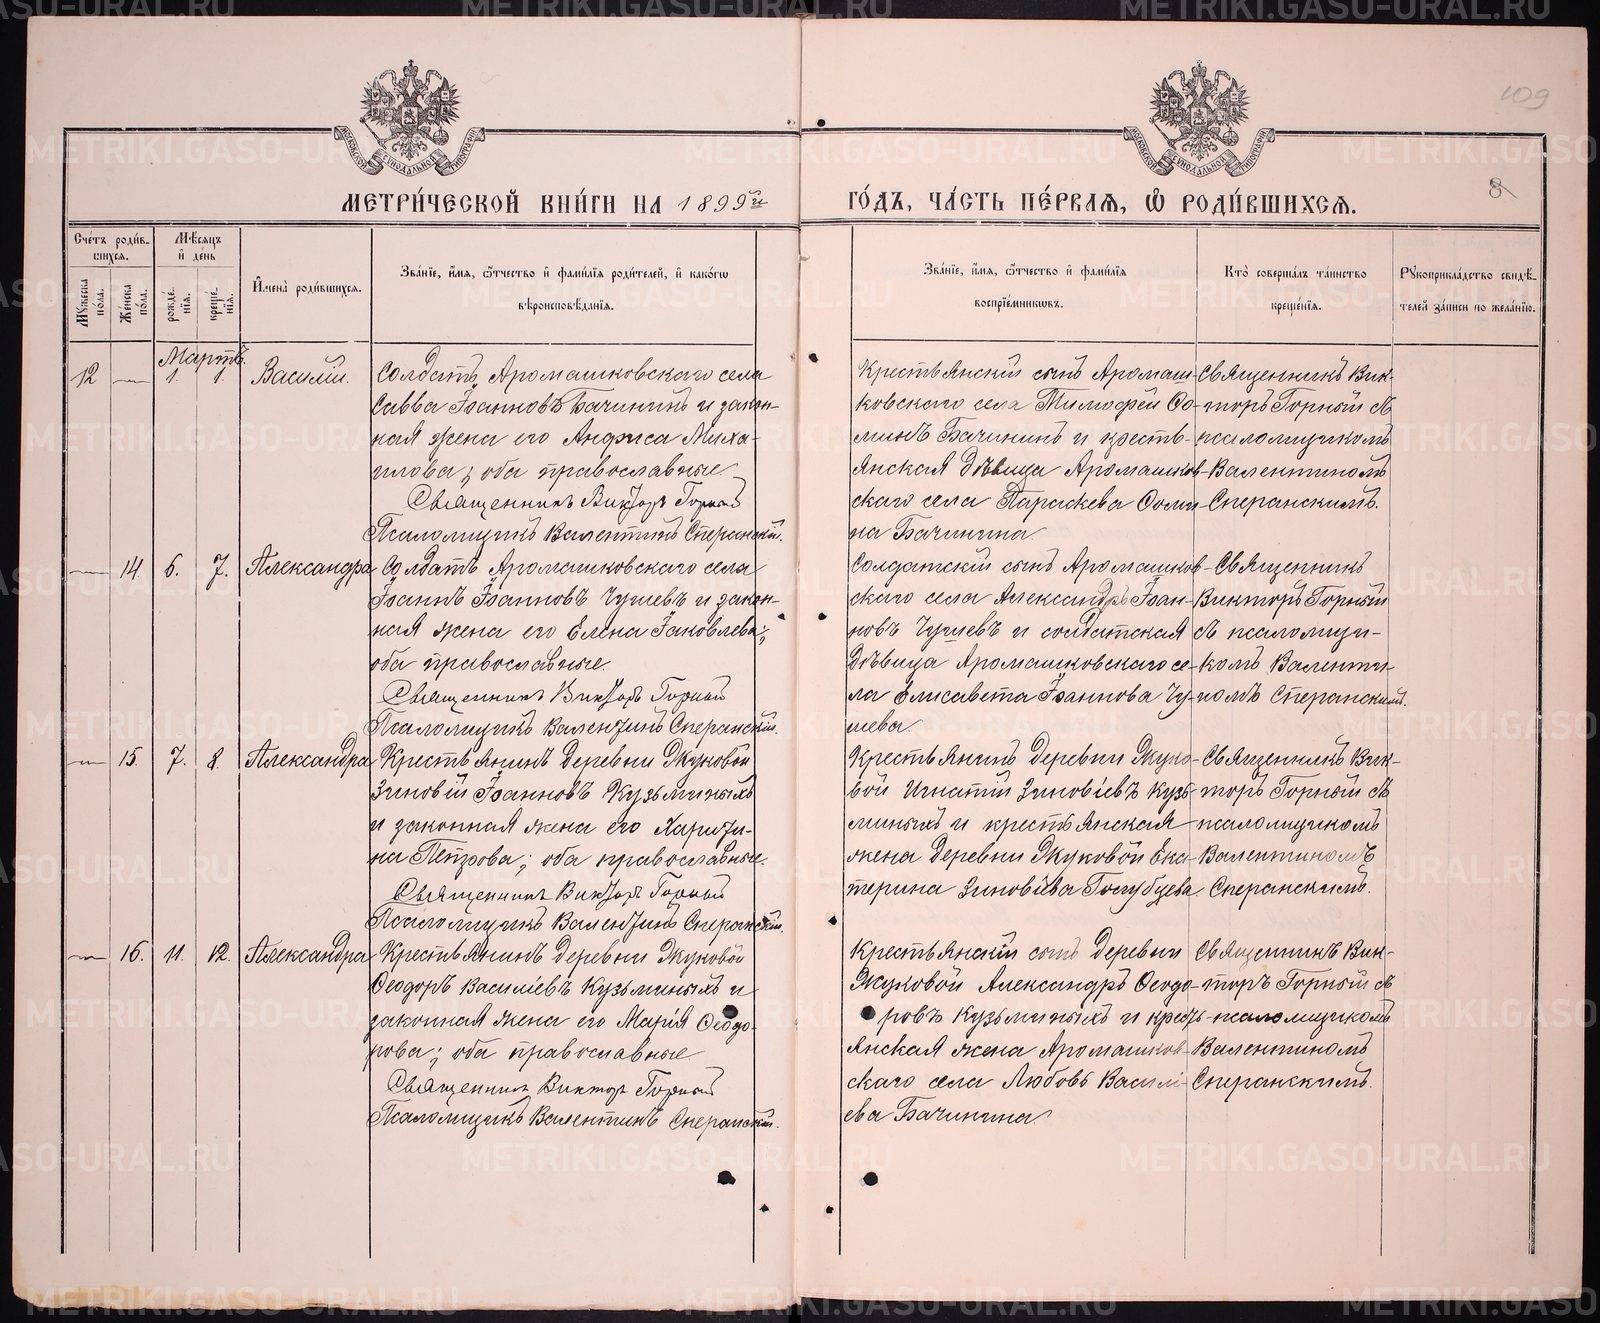 METRIKI.GASO-URAL.RU
109
8
МОСКОВСКОЙ СѴНОДАЛЬНОЙ ТИПОГРАФІИ
МОСКОВСКОЙ СѴНОДАЛЬНОЙ ТИПОГРАФІИ
МЕТРИ́ЧЕСКОЙ КНИ́ГИ НА 1899й
ГО́ДЪ, ЧА́СТЬ ПЕ́РВАЯ, Ѡ РОДИ́ВШИХСЯ.
Сче́тъ роди́в-
шихся.
Му́жеска по́ла.
Же́нска по́ла.
Мѣ́сяцъ и де́нь
рожде́нія.
креще́нія.
Имена̀ роди́вшихся.
Зва́ніе, и́мя, ѻ́тчество и фами́лія роди́телей, и како́гѡ
вѣроисповѣ́данія.
Зва́ніе, и́мя, ѻ́тчество и фами́лія
воспріе́мниковъ.
Кто̀ соверша́лъ та́инство
креще́нія.
Рукоприкла́дство свидѣ́-
телей за́писи по жела́нію.
Мартъ
12 — 1. 1. Василій.
Солдатъ Аромашковскаго села
Савва Іоанновъ Бачининъ и закон-
ная жена его Анфиса Миха-
илова; оба православные
Священникъ Викторъ Горный
Псаломщикъ Валентинъ Сперанскій.
Крестьянскій сынъ Аромаш-
ковскаго села Тимофей Со-
минъ Бачининъ и кресть-
янская дѣвица Аромашков-
скаго села Параскева Соми-
на Бачинина
Священникъ Вик-
торъ Горный съ
псаломщикомъ
Валентиномъ
Сперанскимъ.
— 14 6. 7. Александра
Солдатъ Аромашковскаго села
Іоаннъ Іоанновъ Чушевъ и закон-
ная жена его Елена Іаковлева;
оба православные.
Священникъ Викторъ Горный
Псаломщикъ Валентинъ Сперанскій.
Солдатскій сынъ Аромашков-
скаго села Александръ Іоан-
новъ Чушевъ и солдатская
дѣвица Аромашковскаго се-
ла Елисавета Іоаннова Чу-
шева.
Священникъ
Викторъ Горный
съ псаломщи-
комъ Валенти-
номъ Сперанскимъ.
— 15. 7. 8. Александра
Крестьянинъ деревни Жуковой
Зиновій Іоанновъ Кузьминыхъ
и законная жена его Харити-
на Петрова; оба православные.
Священникъ Викторъ Горный
Псаломщикъ Валентинъ Сперанскій.
Крестьянинъ деревни Жуко-
вой Игнатій Зиновіевъ Кузь-
миныхъ и крестьянская
жена деревни Жуковой Ека-
терина Зиновіева Голубцева
Священникъ Вик-
торъ Горный съ
псаломщикомъ
Валентиномъ
Сперанскимъ.
— 16. 11. 12. Александра
Крестьянинъ деревни Жуковой
Ѳеодоръ Василіевъ Кузьминыхъ и
законная жена его Марія Ѳеодо-
рова; оба православные
Священникъ Викторъ Горный
Псаломщикъ Валентинъ Сперанскій.
Крестьянскій сынъ деревни
Жуковой Александръ Ѳеодо-
ровъ Кузьминыхъ и кресть-
янская жена Аромашков-
скаго села Любовь Васили-
ева Бачинина
Священникъ Вик-
торъ Горный съ
псаломщикомъ
Валентиномъ
Сперанскимъ.